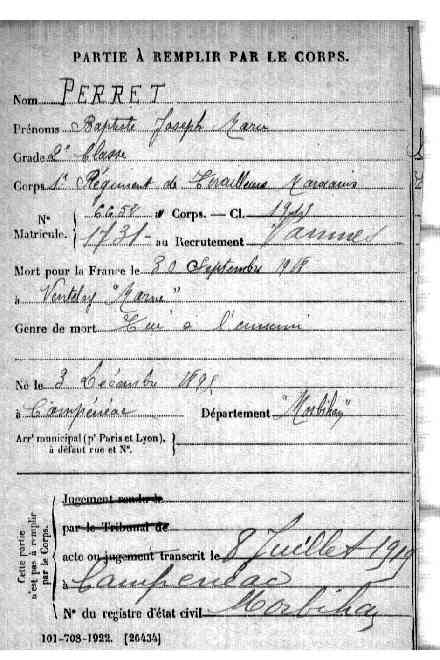 PARTIE À REMPLIR PAR LE CORPS.
Nom PERRET
Prénoms Baptiste Joseph Marie
Grade 2e Classe
Corps 1e Régiment de Tirailleurs Marocains
N° Matricule. { 6658 au Corps. — Cl. 1915
1731 au Recrutement Vannes
Mort pour la France le 30 Septembre 1918
à Ventelay "Marne"
Genre de mort Tué à l'ennemi
Né le 3 Décembre 1895
à Campénéac Département "Morbihan"
Arrt municipal (pr Paris et Lyon), }
à défaut rue et N°.
Cette partie n'est pas à remplir par le Corps.
Jugement rendu le
par le Tribunal de
acte ou jugement transcrit le 8 Juillet 1919
à Campeneac
N° du registre d'état civil Morbihan
101-708-1922. [26434]